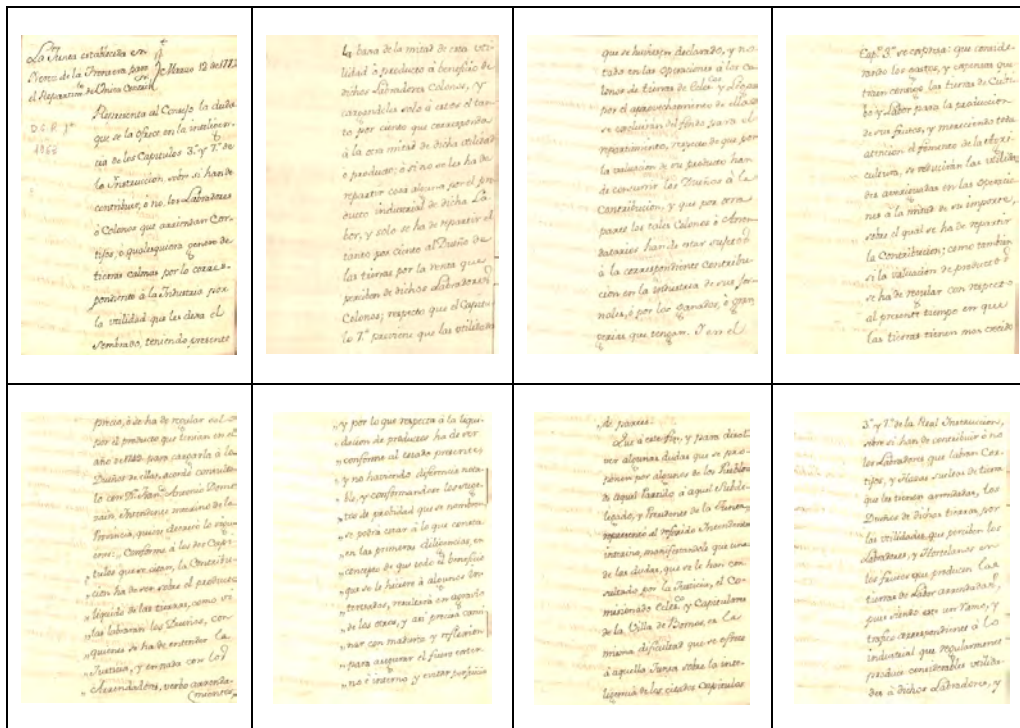 La Junta establecida en
Xerez de la Frontera para
el Repartimto de Unica Concon
Marzo 12 de
Representa al Consejo la duda
que se la ofrece en la inteligen-
cia de los Capitulos 3.º y 7.º de
la Instruccion, sobre si han de
contribuir, ó no, los Labradores
ó Colonos que arriendan Cor-
tijos, ó qualesquiera genero de
tierras calmas por lo corres-
pondiente á la Industria por
la utilidad que les dexa el
sembrado, teniendo presente
la baxa de la mitad de esta uti-
lidad ó producto á beneficio de
dichos Labradores Colonos, y
cargandola solo á estos el tan-
to por ciento que corresponda
á la otra mitad de dicha utilidad
ó producto; ó si no se les ha de
repartir cosa alguna por el pro
ducto industrial de dicha La-
bor, y solo se ha de repartir el
tanto por ciento al Dueño de
las tierras por la renta que
perciben de dichos Labradores
Colonos; respecto que el Capitu-
lo 7.º previene que las utilidades
que se huviesen declarado, y no-
tado en las Operaciones á los Co-
lonos de tierras de Eclesco y Legos
por el aprovechamiento de ellas
se excluirán del fondo para el
repartimiento, respecto de que por
la valuacion de su producto han
de concurrir los Dueños á la
Contribucion, y que por otra
parte los tales Colonos ó Arren-
datarios han de estar sujetos
á la correspondiente Contribu-
cion en la industria de sus jor-
nales, ó por los ganados, ó gran-
gerias que tengan. Y en el
Capº 3.º se expresa: que conside-
rando los gastos, y expensas que
traen consigo las tierras de Culti-
bo y Labor para la produccion
de sus frutos, y mereciendo toda
atencion el fomento de la Agri-
cultura, se reducirán las utilida
des averiguadas en las Operacio-
nes á la mitad de su importe,
sobre el qual se ha de repartir
la Contribucion; como tambien
si la valuacion de producto
se ha de regular con respecto
al presente tiempo en que
las tierras tienen mas crecido
precio, ó se ha de regular solo
por el producto que tenian en el
año de para cargarla á los
Dueños de ellas, acordó consultar-
lo con Dn Juan Antonio Dome
zain, Intendente interino de la
Provincia, quien declaró lo siguien
te: „ Conforme á los dos Capi-
„ tulos que se citan, la Contribu-
„ cion ha de ser sobre el producto
„ liquido de las tierras, como si
„ las labraran los Dueños, con
„ quienes se ha de entender la
„ Justicia, y en nada con los
„ Arrendadores, verbo arrenda-
(mientos,
„ y por lo que respecta á la liqui-
„ dacion de productos ha de ser
„ conforme al estado presente,
„ y no haviendo diferencia nota-
„ ble, y conformandose los suge-
„ tos de probidad que se nombren,
„ se podrá estar á lo que conste
„ en las primeras diligencias, en
„ concepto de que todo el beneficio
„ que se le hiciere á algunos In-
„ teresados, resultaria en agravio
„ de los otros, y asi precisa cami-
„ nar con madurez y reflexion
„ para asegurar el fuero exter-
„ no é interno y evitar perjuicio
„ de partes.
Que á este fin, y para disol-
ver algunas dudas que se pro-
ponen por algunos de los Pueblos
de aquel Partido á aquel Subde-
legado, y Presidente de la Junta,
representó al referido Intendente
interino, manifestandole que una
de las dudas, que se le han con-
sultado por la Justicia, el Co-
misionado Eclesco y Capitulares
de la Villa de Bornos, es la
misma dificultad que se ofrece
á aquella Junta sobre la inte-
ligencia de los citados Capitulos
3.º y 7.º de la Real Instruccion,
sobre si han de contribuir ó no
los Labradores que labran Cor-
tijos, y Hazas sueltas de tierra
que las tienen arrendadas, los
Dueños de dichas tierras, por
las utilidades que perciben los
Labradores, y Hortelanos en
los frutos que producen las
tierras de Labor arrendadas,
pues siendo este un Ramo, y
trafico correspondiente á lo
industrial que regularmente
produce considerables utilida-
des á dichos Labradores, y